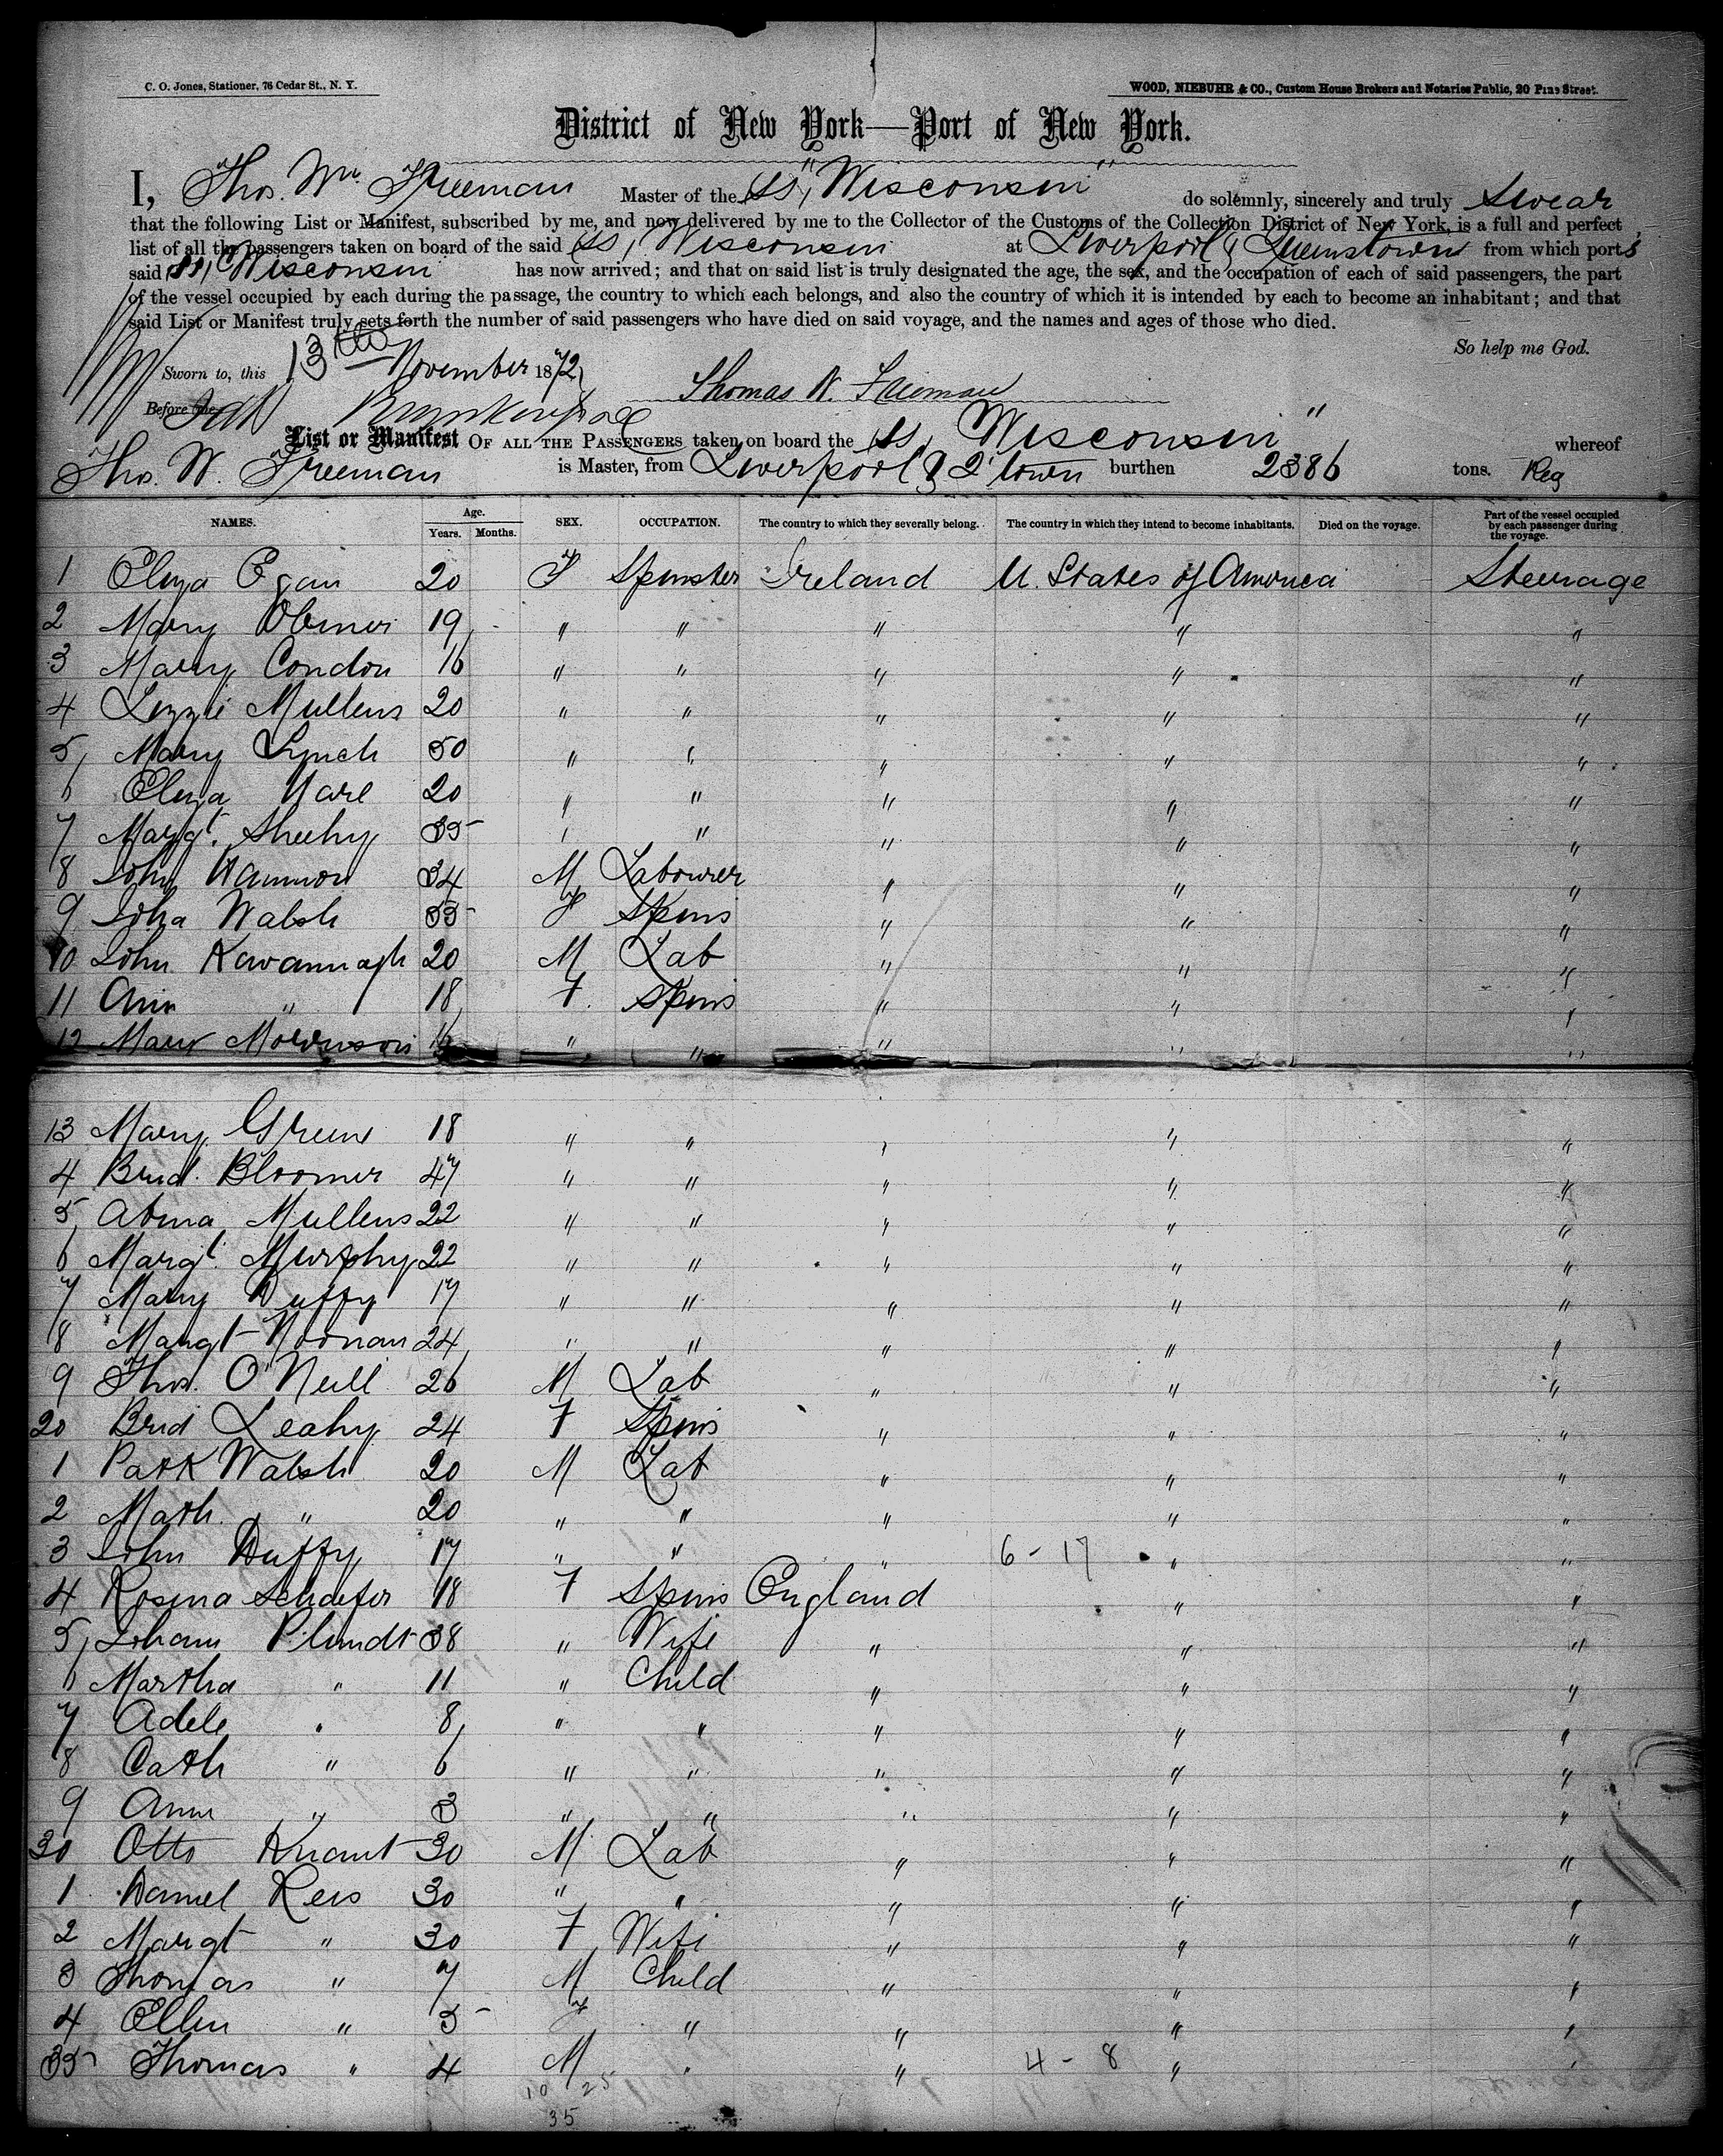 C. O. Jones, Stationer, 76 Cedar St., N. Y.
WOOD, NIEBUHR & CO., Custom House Brokers and Notaries Public, 20 Pine Street.
District of New York—Port of New York.
I, Thos. Wm. Freeman Master of the SS, "Wisconsin" do solemnly, sincerely and truly Swear
that the following List or Manifest, subscribed by me, and now delivered by me to the Collector of the Customs of the Collection District of New York, is a full and perfect
list of all the passengers taken on board of the said SS, Wisconsin at Liverpool & Queenstown from which ports
said SS, Wisconsin has now arrived; and that on said list is truly designated the age, the sex, and the occupation of each of said passengers, the part
of the vessel occupied by each during the passage, the country to which each belongs, and also the country of which it is intended by each to become an inhabitant; and that
said List or Manifest truly sets forth the number of said passengers who have died on said voyage, and the names and ages of those who died.
So help me God.
Sworn to, this 13th November 1872
Thomas W. Freeman
Before me
List or Manifest OF ALL THE PASSENGERS taken on board the SS, Wisconsin " whereof
Thos. W. Freeman is Master, from Liverpool & Q'town burthen 2386 tons. Reg
NAMES. Age. Years. Months. SEX. OCCUPATION. The country to which they severally belong. The country in which they intend to become inhabitants. Died on the voyage. Part of the vessel occupied by each passenger during the voyage.
1 Eliza Egan 20 F Spinster Ireland U. States of America Steerage
2 Mary 19 " " " " "
3 Mary Condon 16 " " " " "
4 Lizzie Mullens 20 " " " " "
5 Mary Lynch 50 " " " " "
6 Eliza 20 " " " " "
7 Margt. Sheehy 35 " " " " "
8 John Hannon 34 M Labourer " " "
9 Joha Walsh 35 F Spins " " "
10 John Kavannagh 20 M Lab " " "
11 Ann " 18 F. Spins " " "
12 Mary Morrinson 16 " " " " "
13 Mary Green 18 " " " " "
4 Brid. Bloomer 47 " " " " "
5 Mullens 22 " " " " "
6 Margt. Murphy 22 " " " " "
7 Mary Duffy 17 " " " " "
8 Margt Noonan 24 " " " " "
9 Thos. O'Neill 26 M Lab " " "
20 Brid Leahy 24 F Spins " " "
1 Patk Walsh 20 M Lab " " "
2 Math. " 20 " " " " "
3 John Duffy 17 " " " 6 - 17 " "
4 Rosina Schaefer 18 F Spins England " "
5 Johann 38 " Wife " " "
6 Martha " 11 " Child " " "
7 Adele " 8 " " " " "
8 Cath " 6 " " " " "
9 Ann " 3 " " " " "
30 Otto Knaut 30 M Lab " " "
1 Daniel Rees 30 " " " " "
2 Margt " 30 F Wife " " "
3 Thomas " 7 M Child " " "
4 Ellen " 5 F " " " "
35 Thomas " 4 M " " 4 - 8 " "
10 25
35